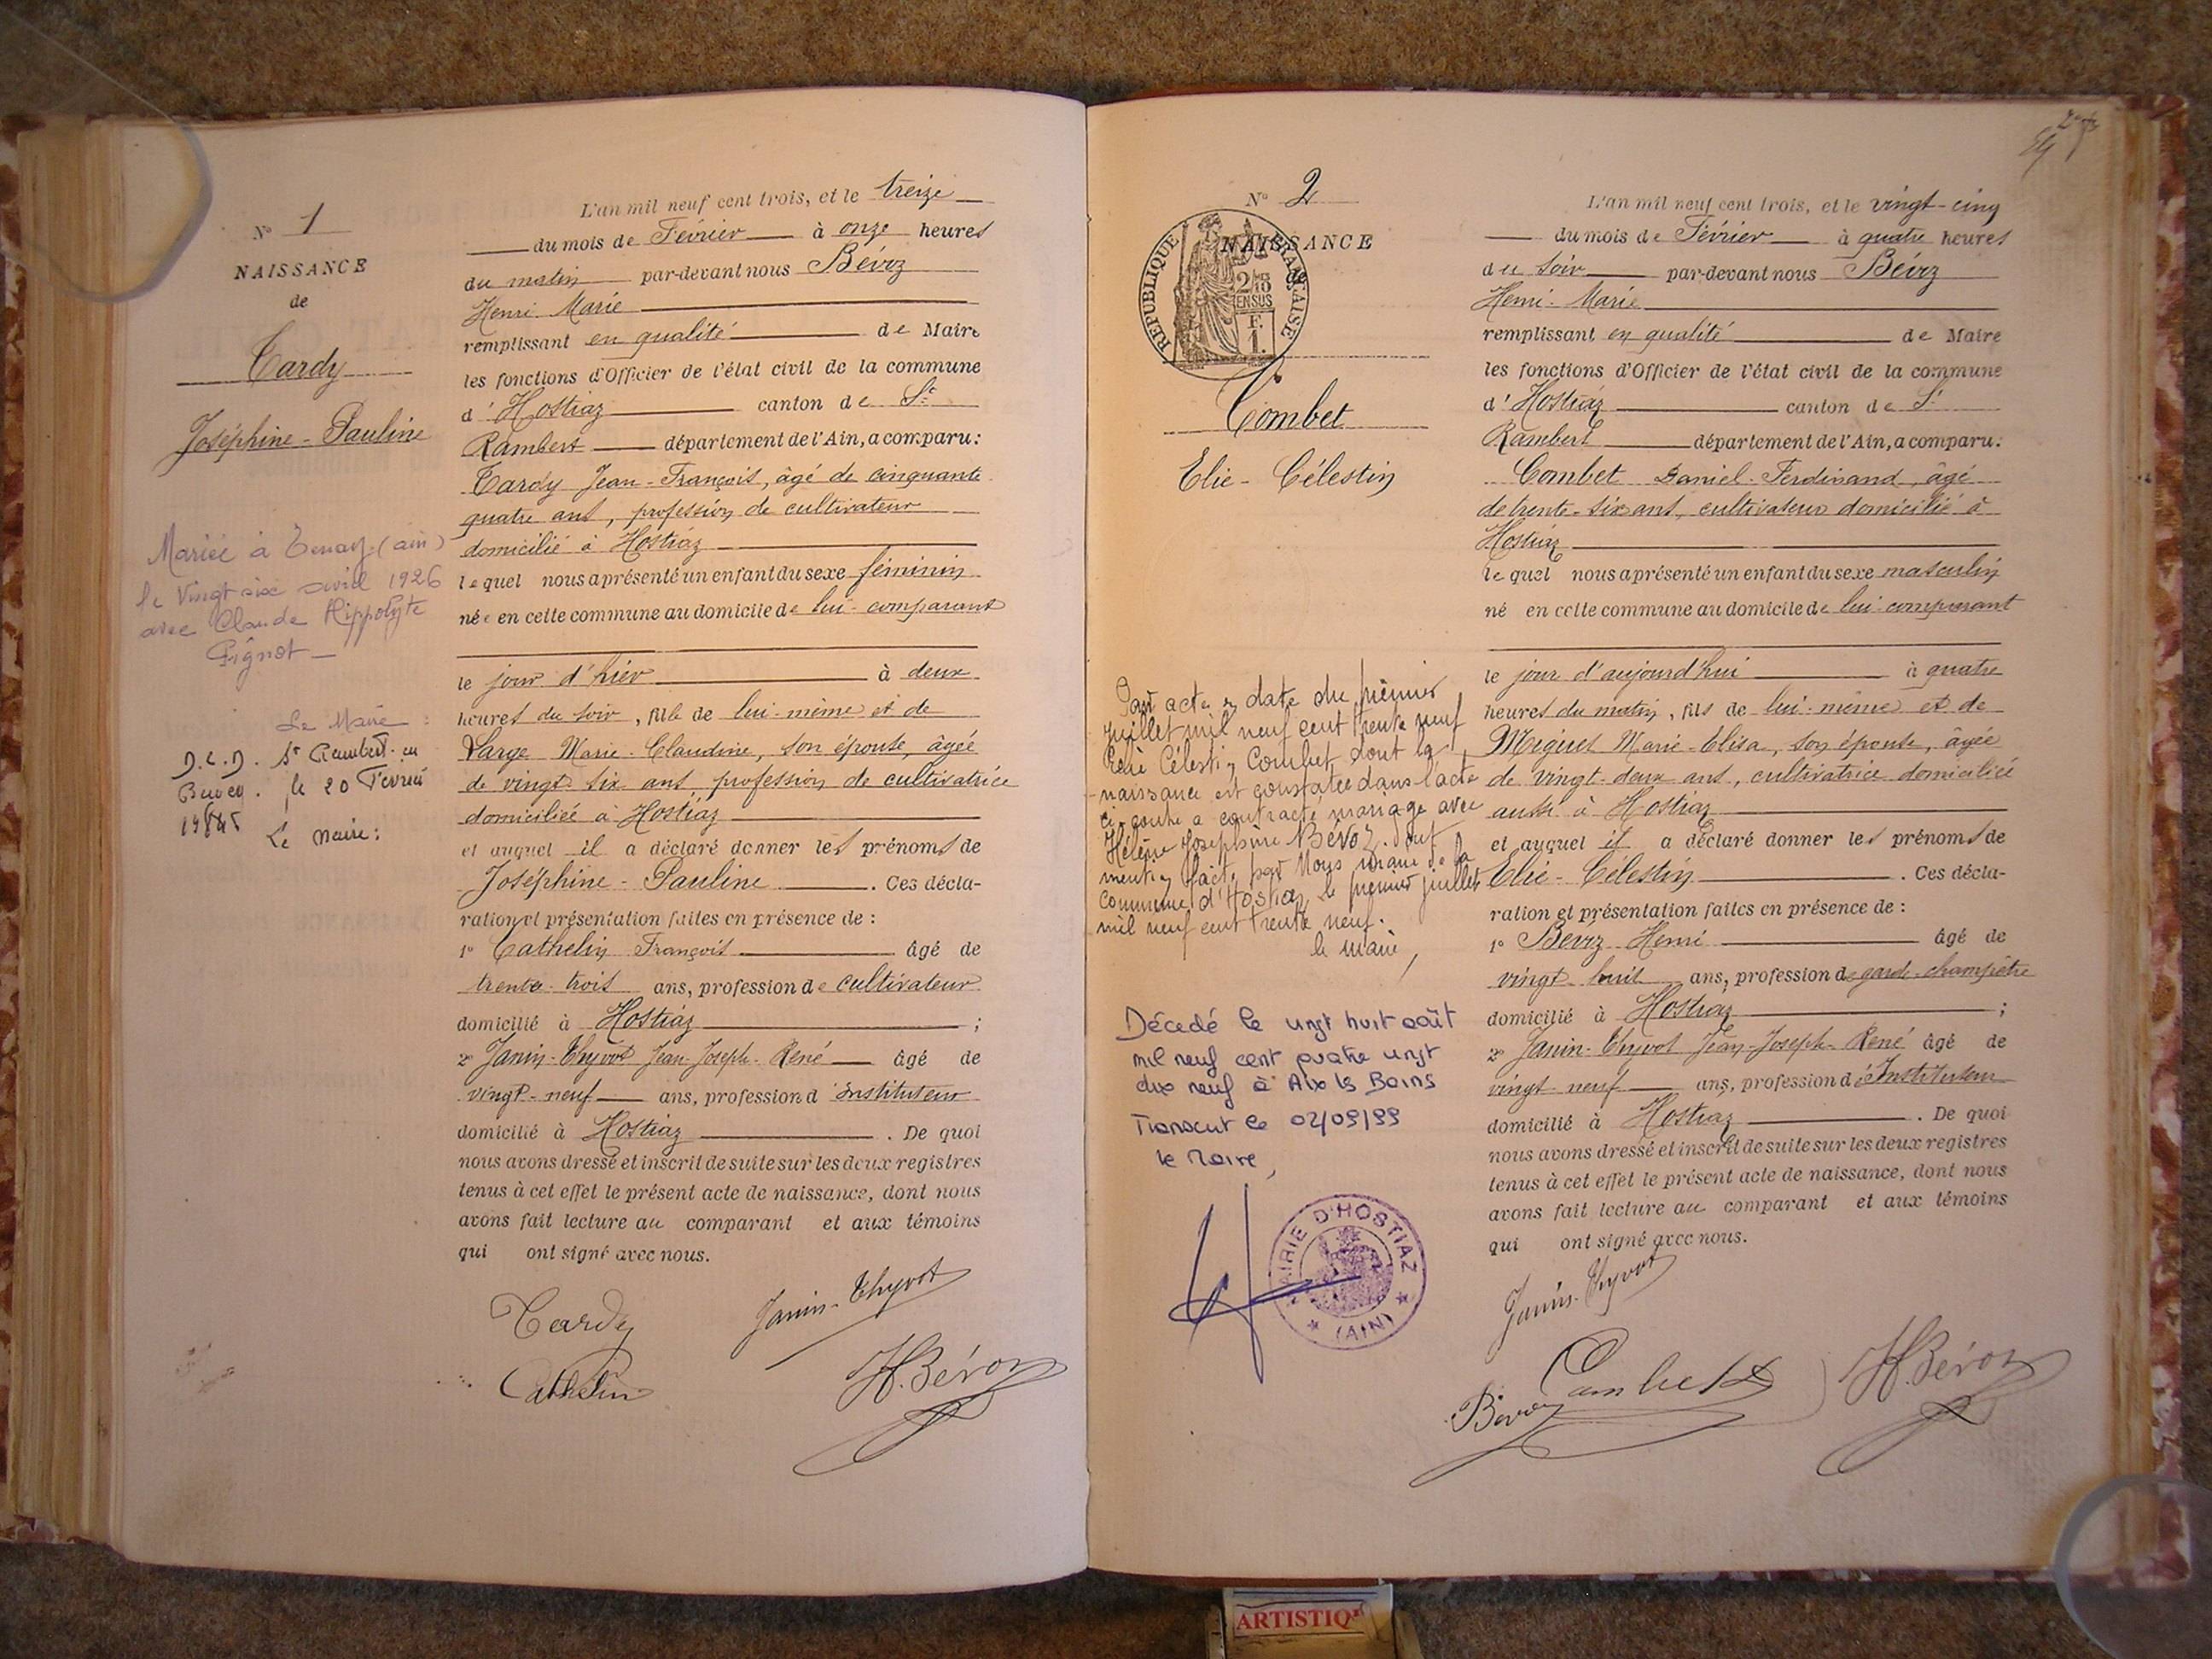 N° 1
NAISSANCE
de
Tardy
Joséphine - Pauline
Mariée à Tenay (ain)
le vingt six avril 1926
avec Claude Hippolyte
Pignot
Le Maire :
D.C.D. St Rambert-en
Bugey. le 20 Février
Le Maire :
L'an mil neuf cent trois, et le treize
du mois de Février à onze heures
du matin par-devant nous Bévoz
Henri Marie
remplissant en qualité de Maire
les fonctions d'Officier de l'état civil de la commune
d'Hostiaz canton de St
Rambert département de l'Ain, a comparu:
Tardy Jean-François, âgé de cinquante
quatre ans, profession de cultivateur
domicilié à Hostiaz
lequel nous a présenté un enfant du sexe féminin
née en cette commune au domicile de lui-comparant
le jour d'hier à deux
heures du soir, fille de lui-même et de
Large Marie-Claudine, son épouse, âgée
de vingt-six ans, profession de cultivatrice
domiciliée à Hostiaz
et auquel il a déclaré donner les prénoms de
Joséphine - Pauline. Ces décla-
ration et présentation faites en présence de :
1° Cathelin François âgé de
trente-trois ans, profession de cultivateur
domicilié à Hostiaz ;
2° Janin-Thyvot Jean-Joseph-René âgé de
vingt-neuf ans, profession d'instituteur
domicilié à Hostiaz. De quoi
nous avons dressé et inscrit de suite sur les deux registres
tenus à cet effet le présent acte de naissance, dont nous
avons fait lecture au comparant et aux témoins
qui ont signé avec nous.
Tardy
Janin-Thyvot
Cathelin
H. Bévoz
N° 2
NAISSANCE
REPUBLIQUE FRANÇAISE
Combet
Elie - Célestin
Par acte en date du premier
juillet mil neuf cent trente neuf
Elie Célestin Combet dont la
naissance est constatée dans l'acte
ci-contre a contracté mariage avec
Hélène Joséphine Bévoz.
mention faite par Nous maire de la
commune d'Hostiaz le premier juillet
mil neuf cent trente neuf.
le maire,
Décédé le vingt huit août
mil neuf cent quatre vingt
dix neuf à Aix les Bains
Transcrit le 02/09/99
le Maire,
MAIRIE D'HOSTIAZ
(AIN)
L'an mil neuf cent trois, et le vingt-cinq
du mois de Février à quatre heures
du soir par-devant nous Bévoz
Henri-Marie
remplissant en qualité de Maire
les fonctions d'Officier de l'état civil de la commune
d'Hostiaz canton de St
Rambert département de l'Ain, a comparu:
Combet Daniel-Ferdinand, âgé
de trente-six ans, cultivateur domicilié à
Hostiaz
lequel nous a présenté un enfant du sexe masculin
né en cette commune au domicile de lui-comparant
le jour d'aujourd'hui à quatre
heures du matin, fils de lui-même et de
Miguet Marie-Elisa, son épouse, âgée
de vingt-deux ans, cultivatrice domiciliée
aussi à Hostiaz
et auquel il a déclaré donner les prénoms de
Elie - Célestin. Ces décla-
ration et présentation faites en présence de :
1° Bévoz Henri âgé de
vingt huit ans, profession de garde-champêtre
domicilié à Hostiaz ;
2° Janin-Thyvot Jean-Joseph-René âgé de
vingt-neuf ans, profession d'Instituteur
domicilié à Hostiaz. De quoi
nous avons dressé et inscrit de suite sur les deux registres
tenus à cet effet le présent acte de naissance, dont nous
avons fait lecture au comparant et aux témoins
qui ont signé avec nous.
Janin-Thyvot
Combet
Bévoz
H. Bévoz
ARTISTIQ